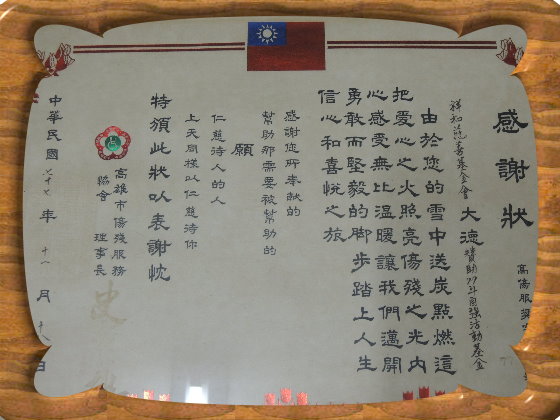 感謝狀
高傷服獎
祥和慈善基金會 大德 贊助77年自強活動基金
由於您的雪中送炭點燃這
把愛心之火照亮傷殘之光內
心感受無比溫暖讓我們邁開
勇敢而堅毅的腳步踏上人生
信心和喜悅之旅
感謝您所奉獻的
幫助那需要被幫助的
願
仁慈待人的人
上天同樣以仁慈待你
特頒此狀以表謝忱
高雄市傷殘服務
協會 理事長
中華民國 七十七 年 十八 月 十八 日